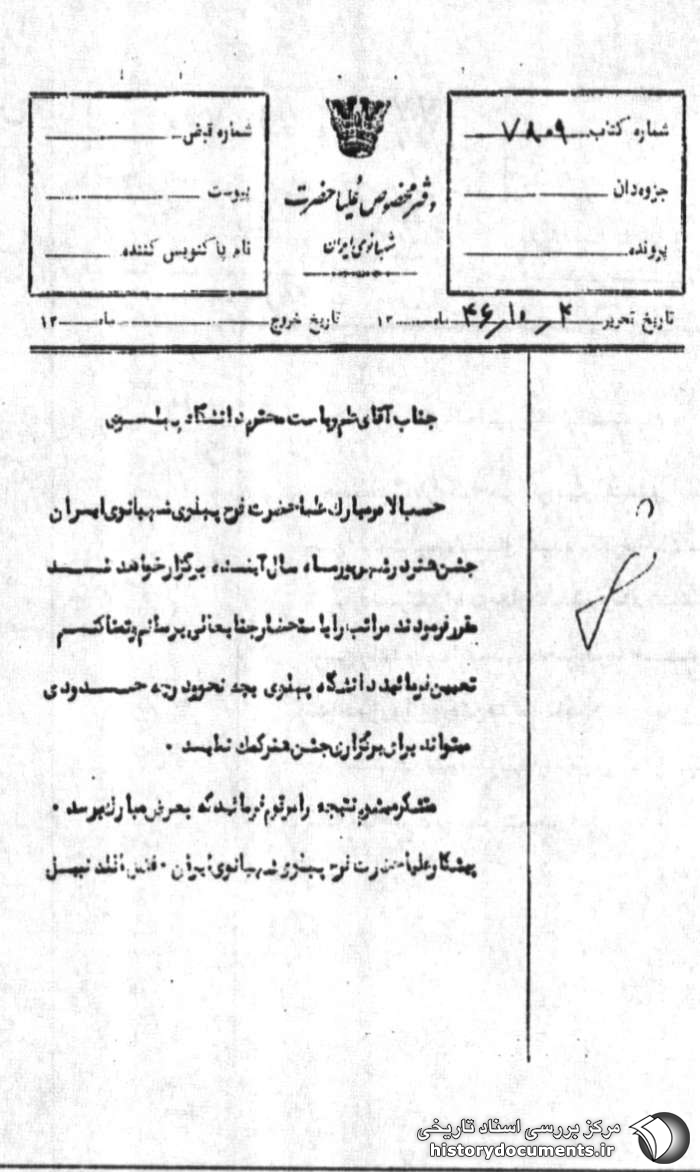 شماره کتاب ۷۸۰۹
جزوه‌دان
پرونده
دفتر مخصوص علیاحضرت
شهبانوی ایران
شماره قبض
پیوست
نام پاکنویس کننده
تاریخ تحریر ۴ / ۱۰ / ۴۶ ماه ۱۳
تاریخ خروج ماه ۱۳
جناب آقای علم ریاست محترم دانشگاه پهلوی
حسب‌الامر مبارک علیاحضرت فرح پهلوی شهبانوی ایران
جشن هنر در شهریور ماه سال آینده برگزار خواهد شد
مقرر فرمودند مراتب را باستحضار جنابعالی برسانم و تمنا کنم
تعیین فرمائید دانشگاه پهلوی بچه نحو و درچه حدودی
میتواند برای برگزاری جشن هنر کمک نماید .
متشکر میشوم نتیجه را مرقوم فرمائید که بعرض مبارک برسد .
پیشکار علیاحضرت فرح پهلوی شهبانوی ایران . فضل‌اله نبیل
مرکز بررسی اسناد تاریخی
historydocuments.ir